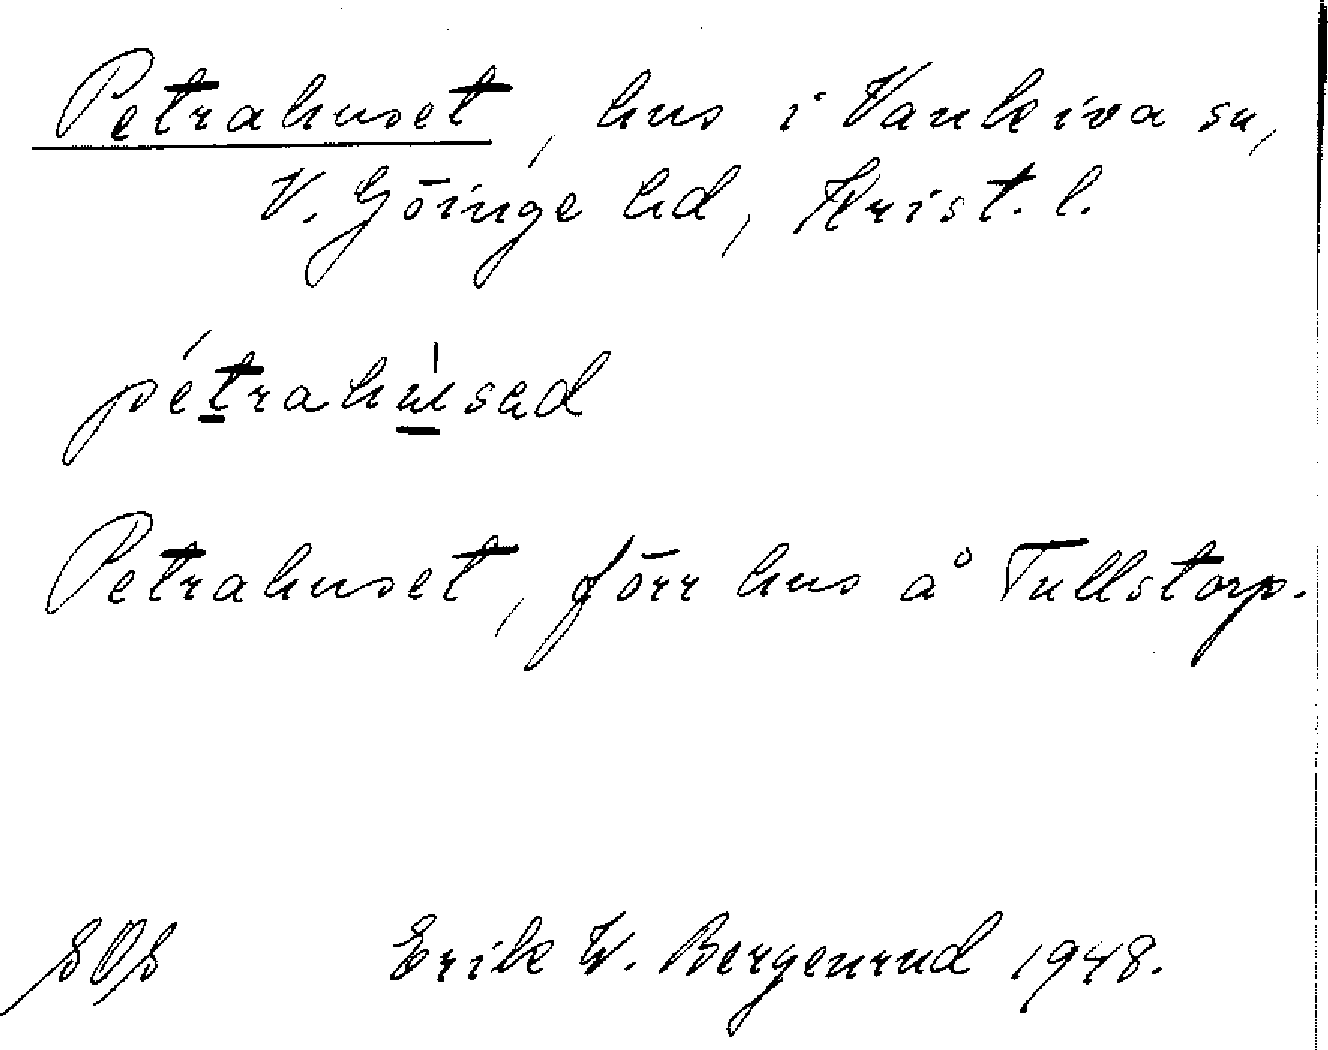 Petrahuset, hus i Vankiva sn,
V. Göinge hd, Krist. l.
pétrahu̍səd
Petrahuset, förr hus å Tullstorp.
SOS Erik W. Bergenrud 1948.